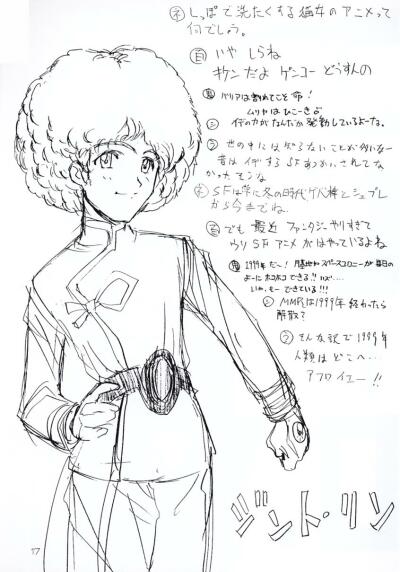 しっぽで洗たくする猫女のアニメって
何でしょう。
いや しらね
キケンだよ ゲンコー どうすんの
バリアは割れてこそ命!
ムリヤはひこーきよ
イデの力がなんだか発動しているよーな。
世の中には知らないことが多いなー
昔はイデする SFあつかいされてな
かったモンな
SFは常に冬の時代
から今までね
でも 最近 ファンタジーやりすぎて
ウソSFアニメがはやっているよね
1999年だー! 月基地やスペースコロニーが毎日の
ように ボコボコできる!! はず…
いや、もー できている!!!
MMRは1999年 終わったら
解散?
そんな訳で1999年
人類はどこへ…
アフロ イエー!!
ジント・リン
17